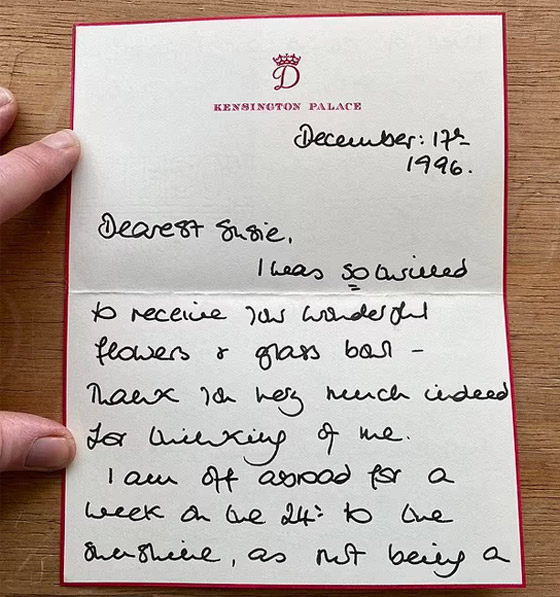 D
KENSINGTON PALACE
December: 17th
1996.
Dearest Susie,
I was so thrilled
to receive your wonderful
flowers & glass bowl -
Thank you very much indeed
for thinking of me.
I am off abroad for a
week on the 24th to the
sunshine, as not being a